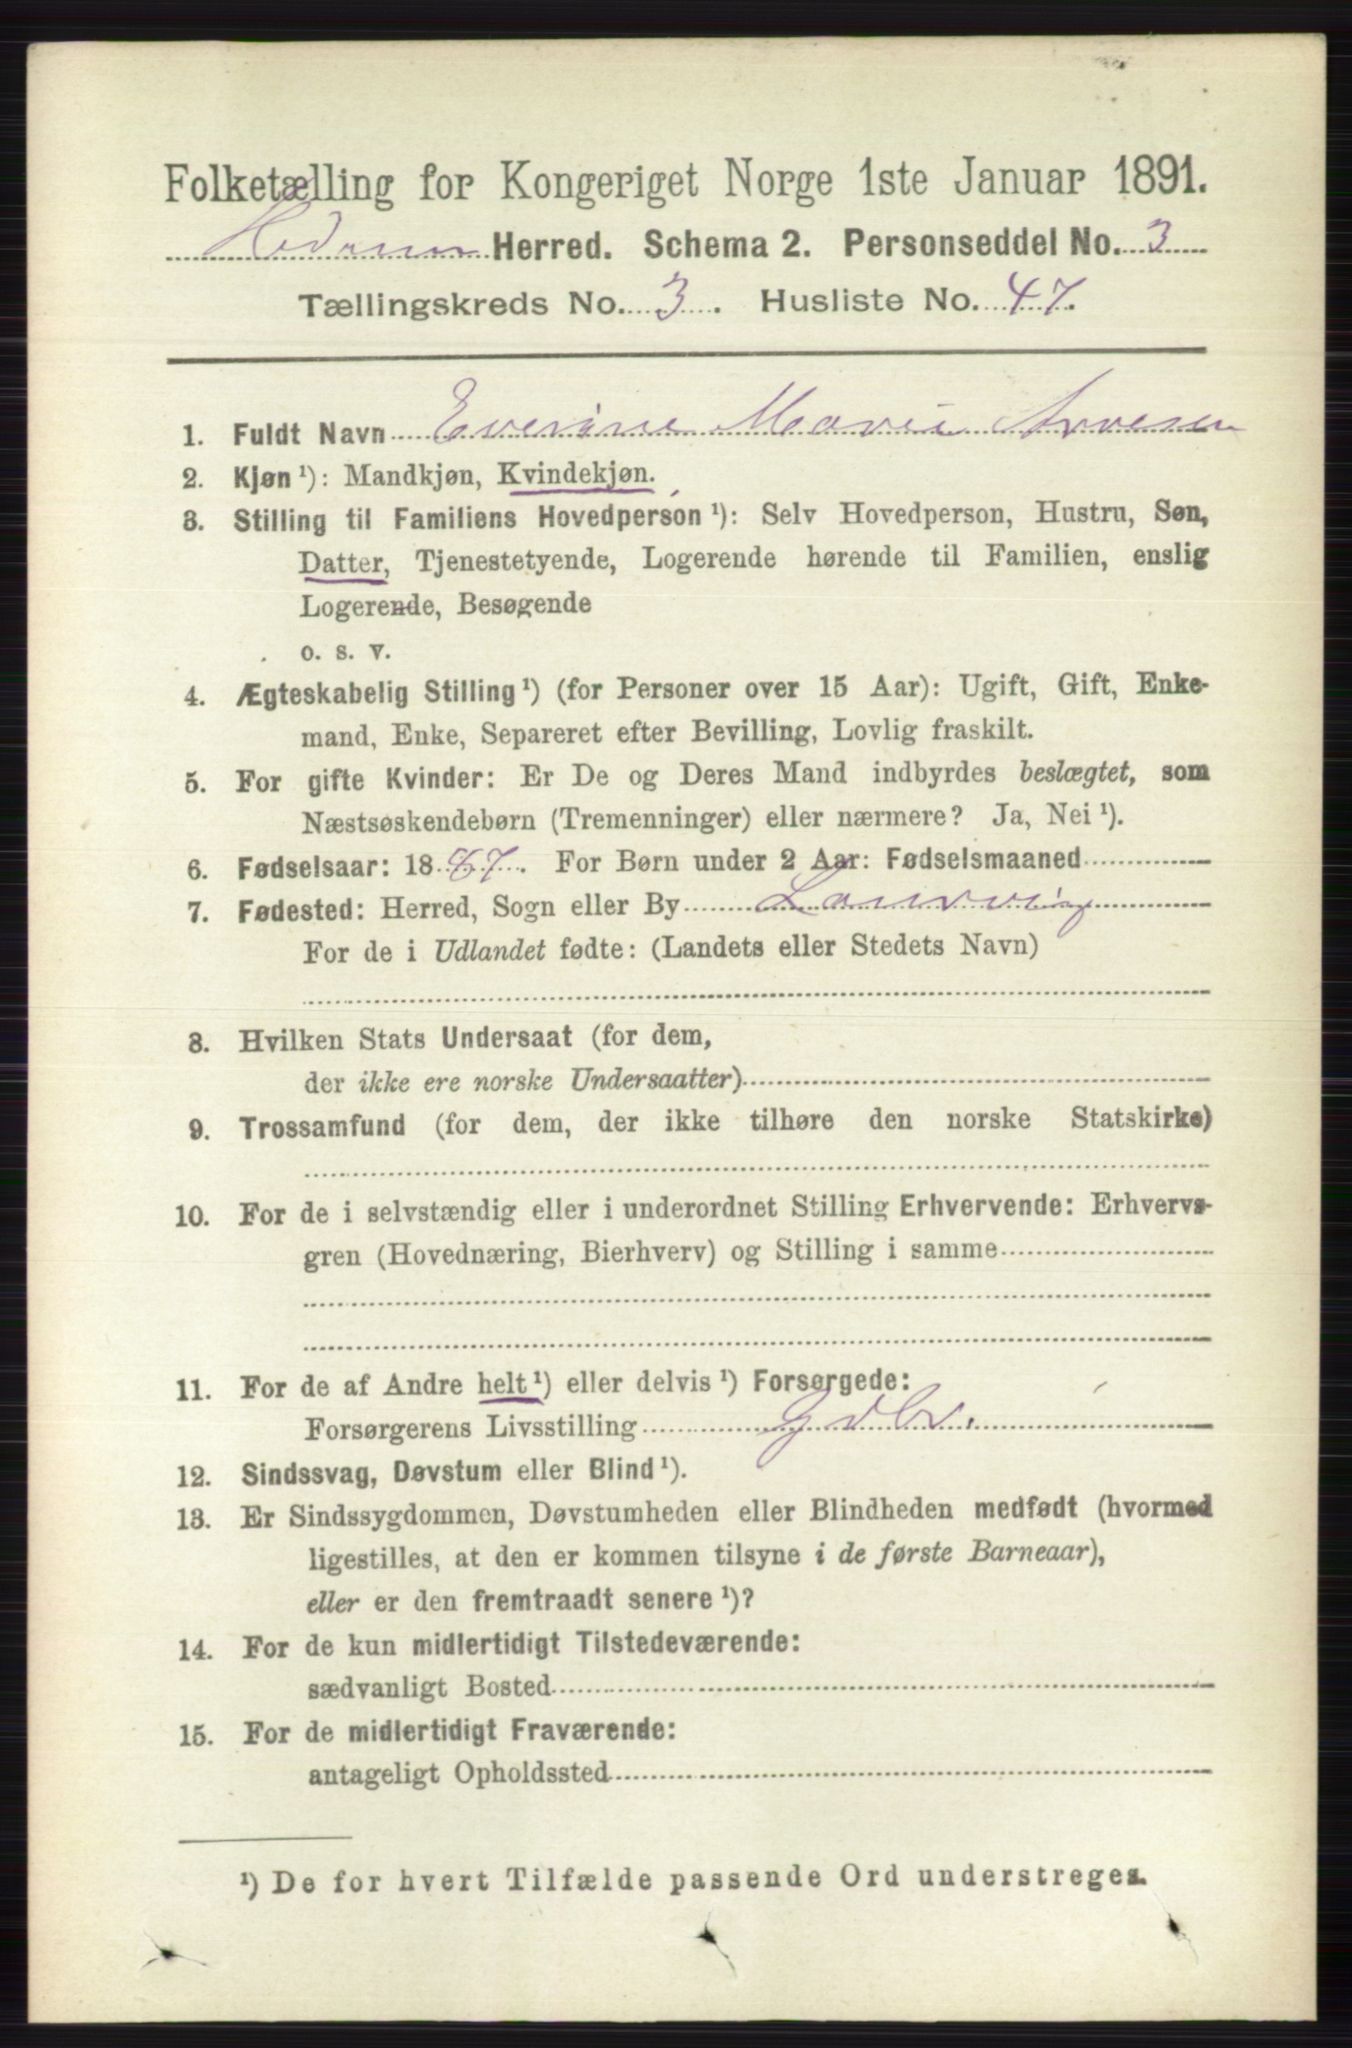 Folketælling for Kongeriget Norge 1ste Januar 1891.
Hedrum Herred. Schema 2. Personseddel No. 3
Tællingskreds No. 3. Husliste No. 47.
1. Fuldt Navn Everine Marie Arvesen
2. Kjøn ¹): Mandkjøn, Kvindekjøn.
3. Stilling til Familiens Hovedperson ¹): Selv Hovedperson, Hustru, Søn,
Datter, Tjenestetyende, Logerende hørende til Familien, enslig
Logerende, Besøgende
o. s. v.
4. Ægteskabelig Stilling ¹) (for Personer over 15 Aar): Ugift, Gift, Enke-
mand, Enke, Separeret efter Bevilling, Lovlig fraskilt.
5. For gifte Kvinder: Er De og Deres Mand indbyrdes beslægtet, som
Næstsøskendebørn (Tremenninger) eller nærmere? Ja, Nei ¹).
6. Fødselsaar: 1887. For Børn under 2 Aar: Fødselsmaaned
7. Fødested: Herred, Sogn eller By Laurvig
For de i Udlandet fødte: (Landets eller Stedets Navn)
8. Hvilken Stats Undersaat (for dem,
der ikke ere norske Undersaatter)
9. Trossamfund (for dem, der ikke tilhøre den norske Statskirke)
10. For de i selvstændig eller i underordnet Stilling Erhvervende: Erhvervs-
gren (Hovednæring, Bierhverv) og Stilling i samme
11. For de af Andre helt ¹) eller delvis ¹) Forsørgede:
Forsørgerens Livsstilling Gdbr.
12. Sindssvag, Døvstum eller Blind ¹).
13. Er Sindssygdommen, Døvstumheden eller Blindheden medfødt (hvormed
ligestilles, at den er kommen tilsyne i de første Barneaar),
eller er den fremtraadt senere ¹)?
14. For de kun midlertidigt Tilstedeværende:
sædvanligt Bosted
15. For de midlertidigt Fraværende:
antageligt Opholdssted
¹) De for hvert Tilfælde passende Ord understreges.